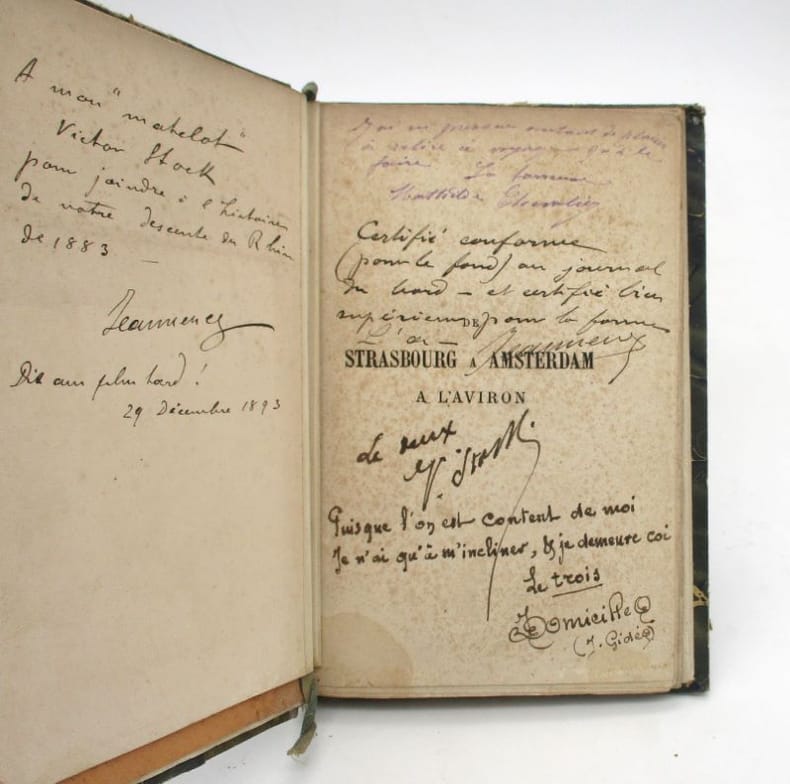 A mon "matelot"
Victor Stock
pour joindre à l'histoire
de notre descente du Rhin
de 1883 –
Jeanmency
Dix ans plus tard !
29 Décembre 1893
à relire ce voyage
faire
Mathilde
Certifié conforme
(pour le fond) au journal
du bord – et certifié bien
supérieur pour la forme
DE
STRASBOURG A AMSTERDAM
A L'AVIRON
Le deux
V. Stock
Puisque l'on est content de moi
Je n'ai qu'à m'incliner, & je demeure coi
Le trois
(J. Gidé)